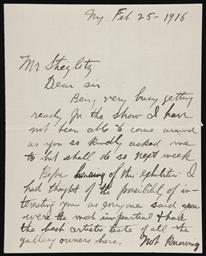 Ny Feb 25 - 1916
Mr Stieglitz
Dear sir
Being very busy getting
ready for the show I have
not been able to come around
as you so kindly asked me
to but shall do so next week
Before hearing of this exhibition I
had thought of the possibility of in-
teresting you as everyone said you
were the most impartial & had
the best artistic taste of all the
gallery owners here. Not knowing